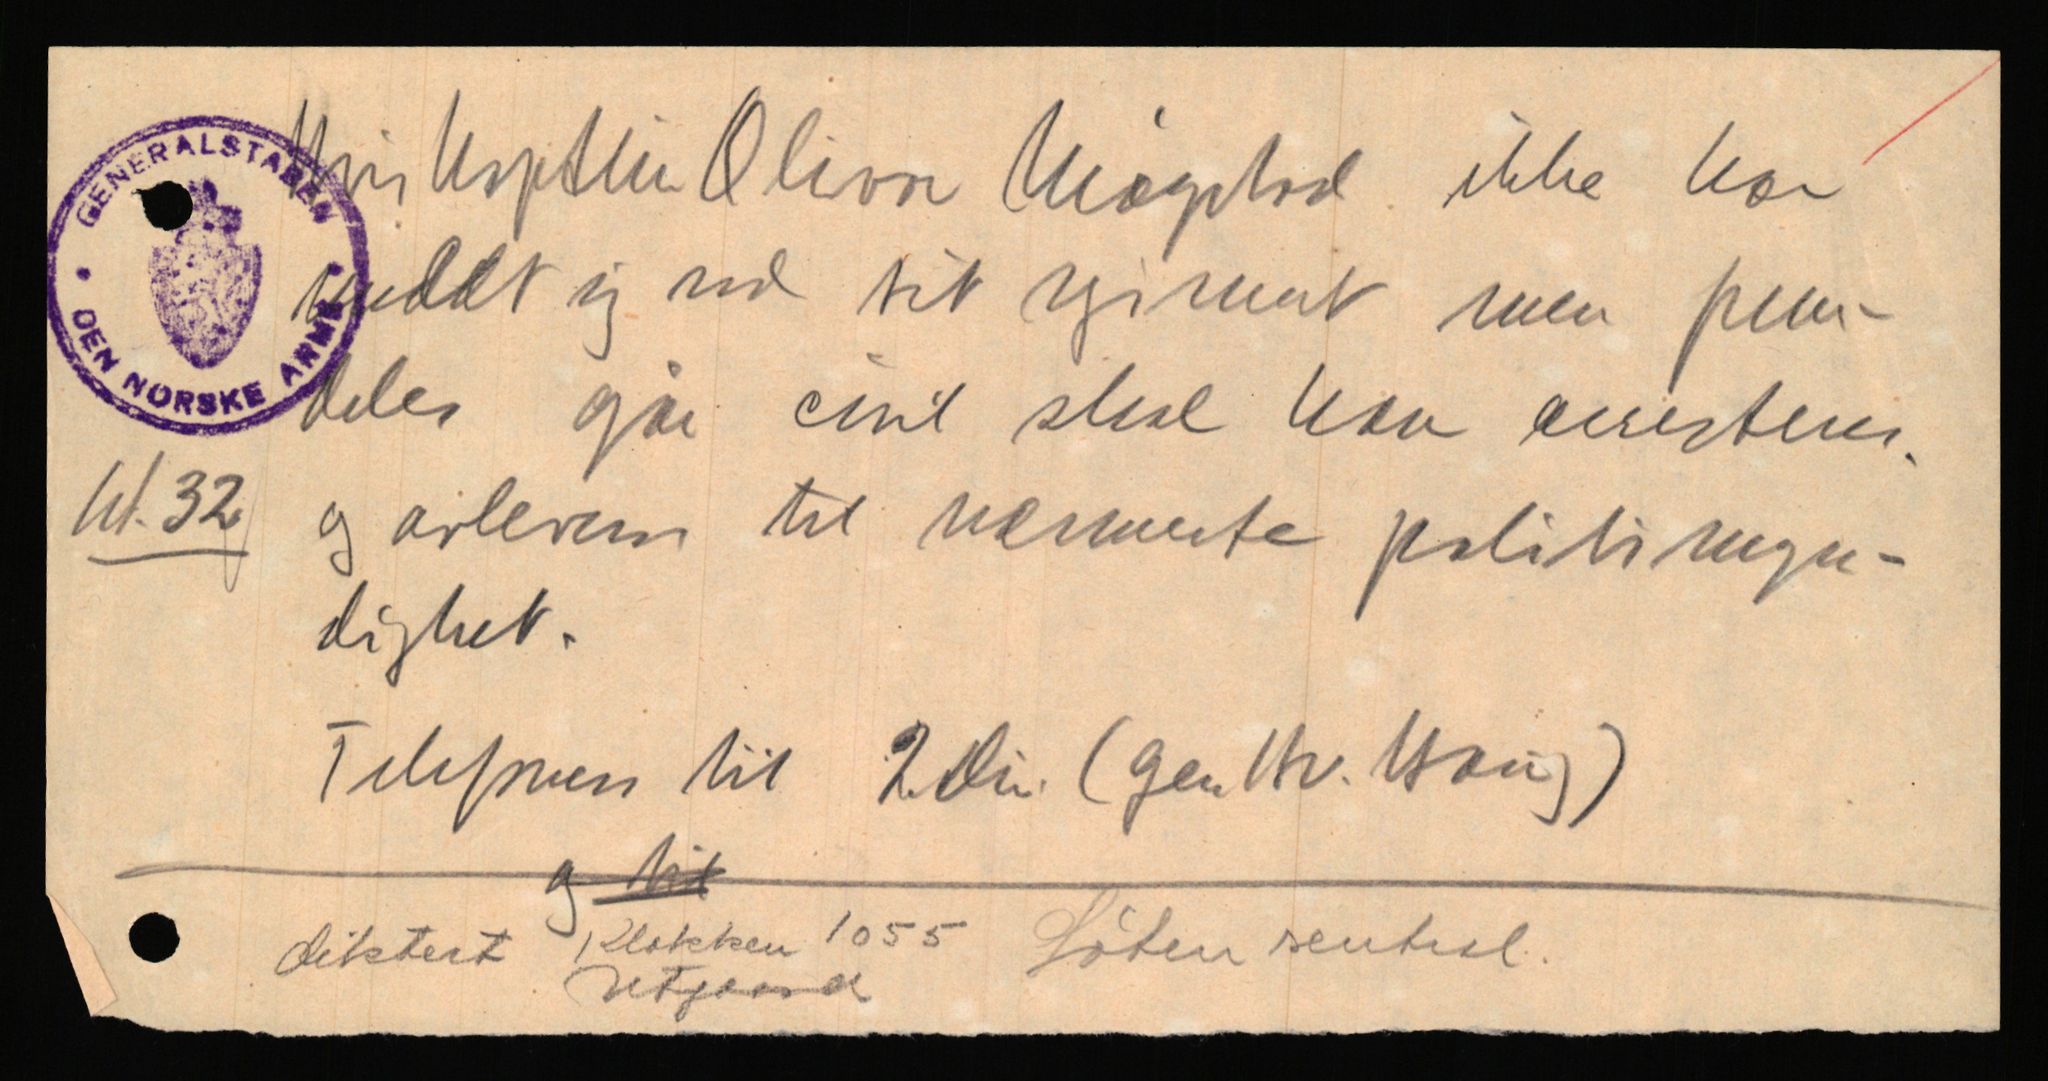 GENERALSTABEN
DEN NORSKE ARME
Hvis kaptein Oliver Møystad ikke har
meldt sig ved sit regiment men frem-
deles går civil skal han arresteres.
og avleveres til nærmeste politimyn-
dighet.
Kl. 32
Telefoneres til 2 Div. (gen. Hv. Haug)
og til
diktert Klokken 1055 Löten sentral.
Utgaard